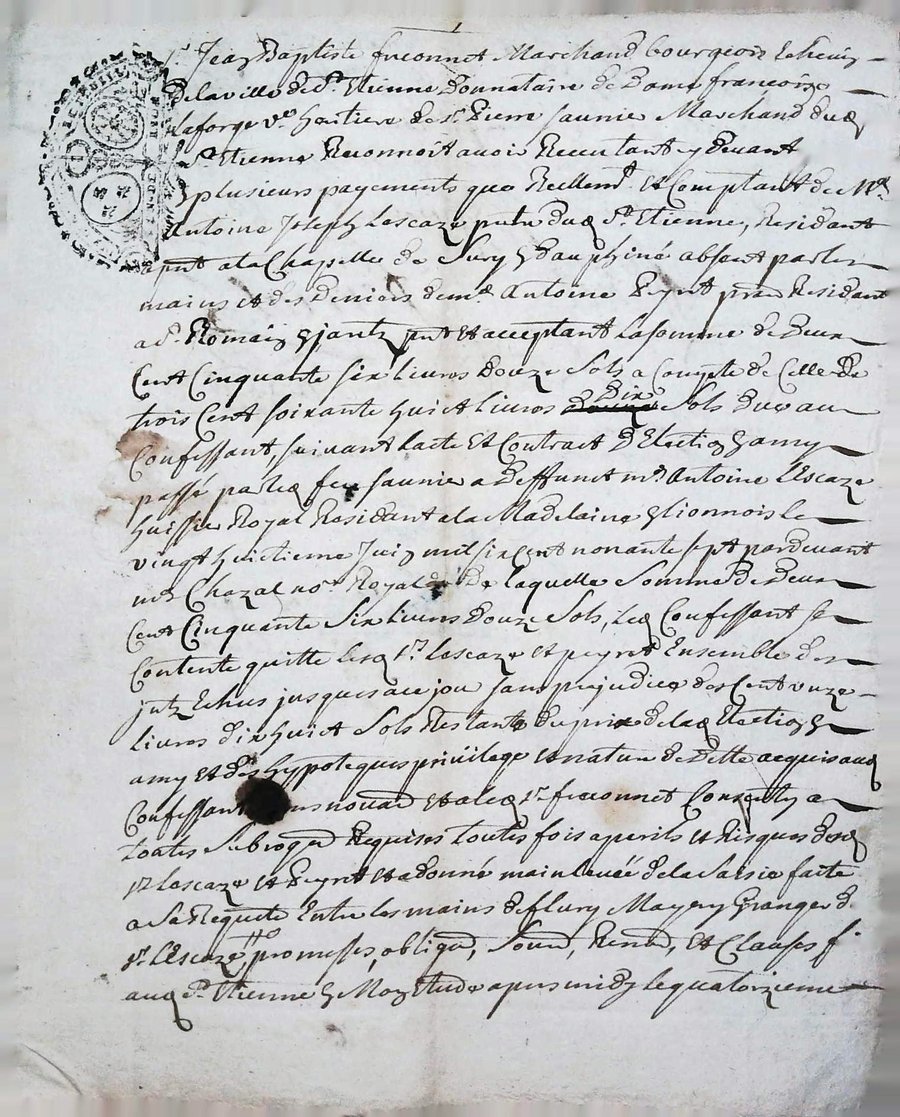 Sr. Jean Baptiste fveonnet Marchand bourgeois Echevin
de la ville de St. Etienne Donnataire de Dame françoise
Laforge vve heritiere de sr. Pierre saunier Marchand dud
St. Etienne Reconnoit avoir Receu tant cy devant
plusieurs payements que Reellemt. et Comptant de Mre
Antoine Joseph Lescaze pretre dud St. Etienne, Residant
a pnt a la Chapelle de Sury en dauphiné absent par les
mains et des Deniers de me. Antoine Peyret pran Residant
a St. Romain en jaretz pnt et acceptant La somme de Deux
Cent Cinquante six Livres Douze Sols a Compte de Celle de
trois Cent soixante huict Livres Dix Sols Due au
Confessant, suivant Lacte et Contract D'Election en amy
passé par led feu saunier a Deffunct mr. Antoine Lescaze
huissier Royal Residant a la Madelaine en lionnois le
vingt huictieme Juin mil six cent nonante sept par devant
me Chazal nore. Royal de Laquelle Somme de Deux
Cent Cinquante Six Livres Douze Sols, Led Confessant se
Contente quitte lesd srs. Lescaze et peyret Ensemble des
jntz Echus jusques a ce jour sans prejudice des Cent onze
Livres dix huict Sols Restants du prix de lad Election en
amy et des hypoteques privilege et nature de Dette acquis aud
Confessant sans novaon et a led sr. Consenty a
toutes Subrogaon Requises toutes fois a perils et Risques desd
srs Lescaze et Peyret et a donné main levée de la Saisie faite
a sa Requete Entre les mains de fleury Mayery Granger de
sr. Lescaze, promesses, obligaon, Soumon, Renon, et Clauses f.
aud St. Etienne en Mon Etude apres midy le quatorzieme